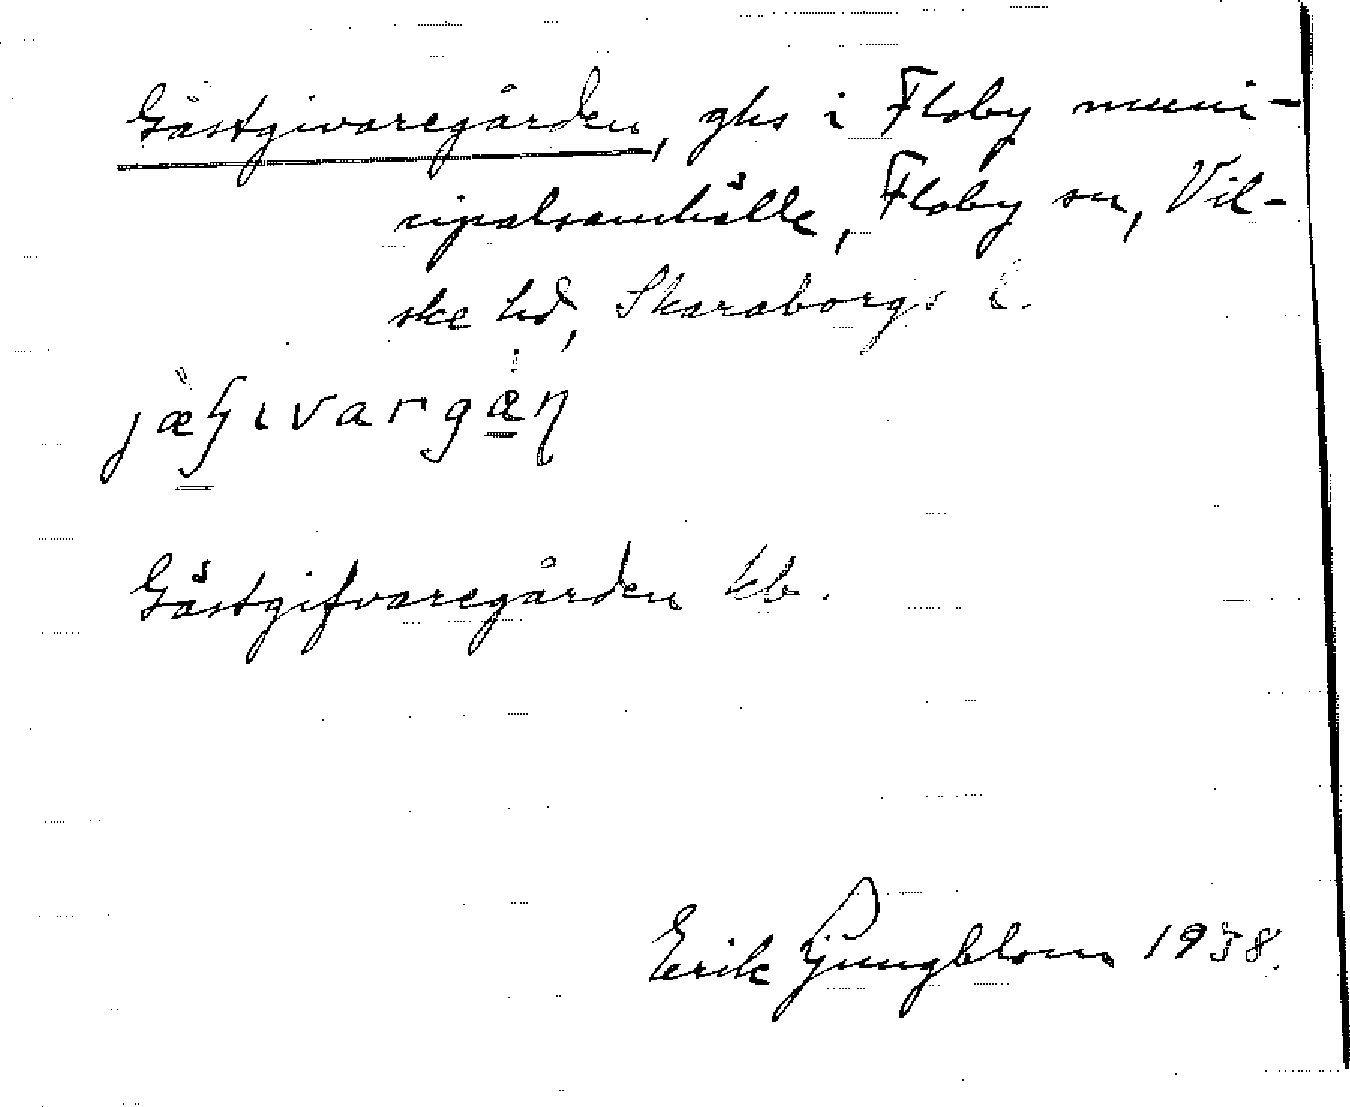 Gästgivaregården, ghs i Floby muni-
cipalsamhälle, Floby sn, Vil-
ske hd, Skaraborgs l.
Gästgifvaregården kb.
Erik Ljungblom 1938.